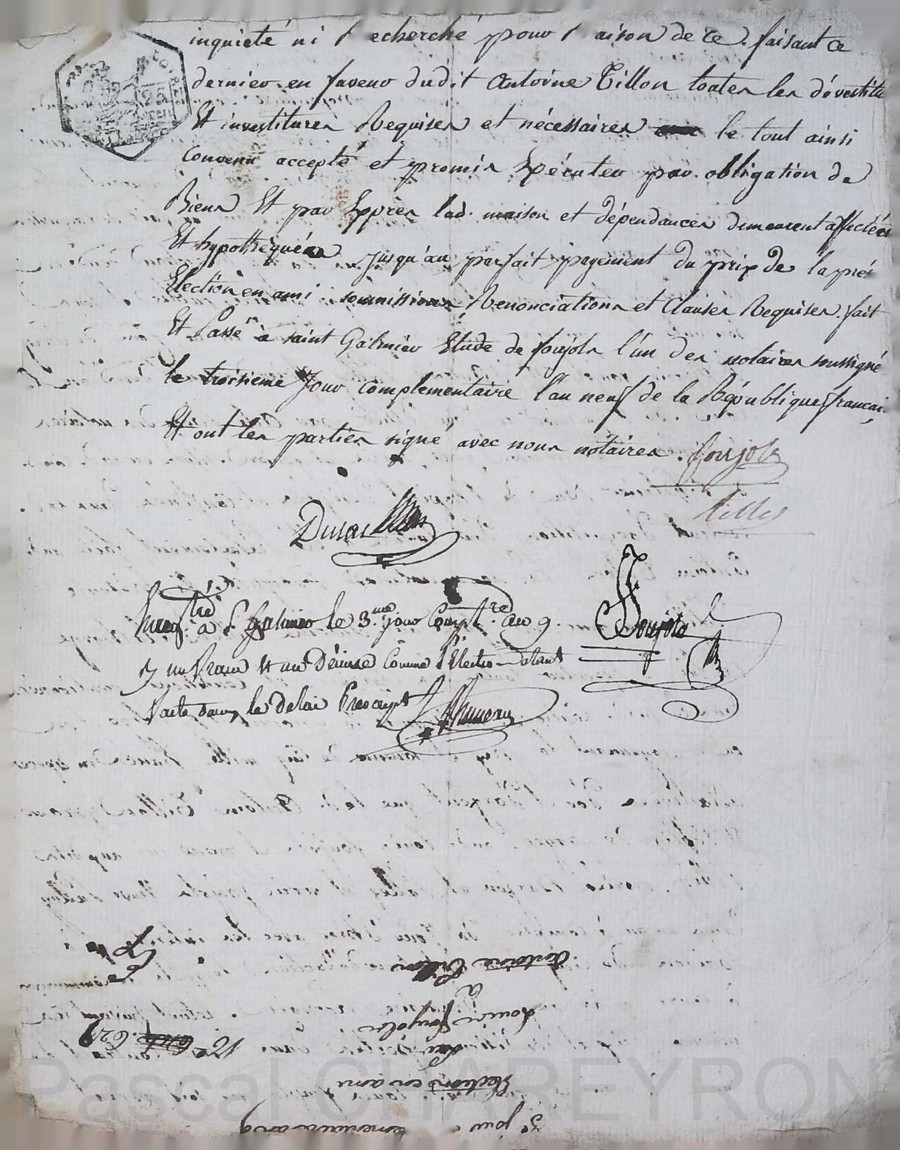 inquieté ni recherché pour raison de ce. faisant ce
dernier en faveur dudit Antoine Tillon toutes les dévestites
Et investitures Requises et nécessaires le tout ainsi
convenu accepté et promis Exécuter par obligation de
Biens Et par Exprès lad. maison et dépendances demeurent affectées
Et hypothequées jusqu'au parfait payement du prix de la pré
Election en ami soumissions Renonciations et Clauses Requises. fait
Et Passé à saint Galmier Etude de foujols l'un des notaires soussigné
le troisieme Jour complementaire l'an neuf de la République francai
Et ont les parties signé avec nous notaires. foujols
Tillon
Duras
à St Galmier le 3.me jour Compl.re an 9
un franc et un Décime Comme l'Election étant
faite dans le delai Prescript
foujols
Antoine Tillon
à
Louis foujols
Election en ami
3e jour complementaire an 9